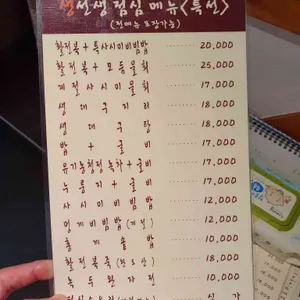 생선생 점심메뉴<특선>
(전메뉴 포장가능)
활전복+특사시미비빔밥 20,000
활전복+모듬물회 25,000
계절사시미물회 17,000
생대구지리 18,000
생대구탕 18,000
밥+굴비 17,000
유기농청정녹차+굴비 17,000
누룽지+굴비 17,000
사시미비빔밥 12,000
멍게비빔밥(계절) 12,000
홍게솥밥 10,000
활전복죽(완도산) 18,000
녹두원자리 10,000